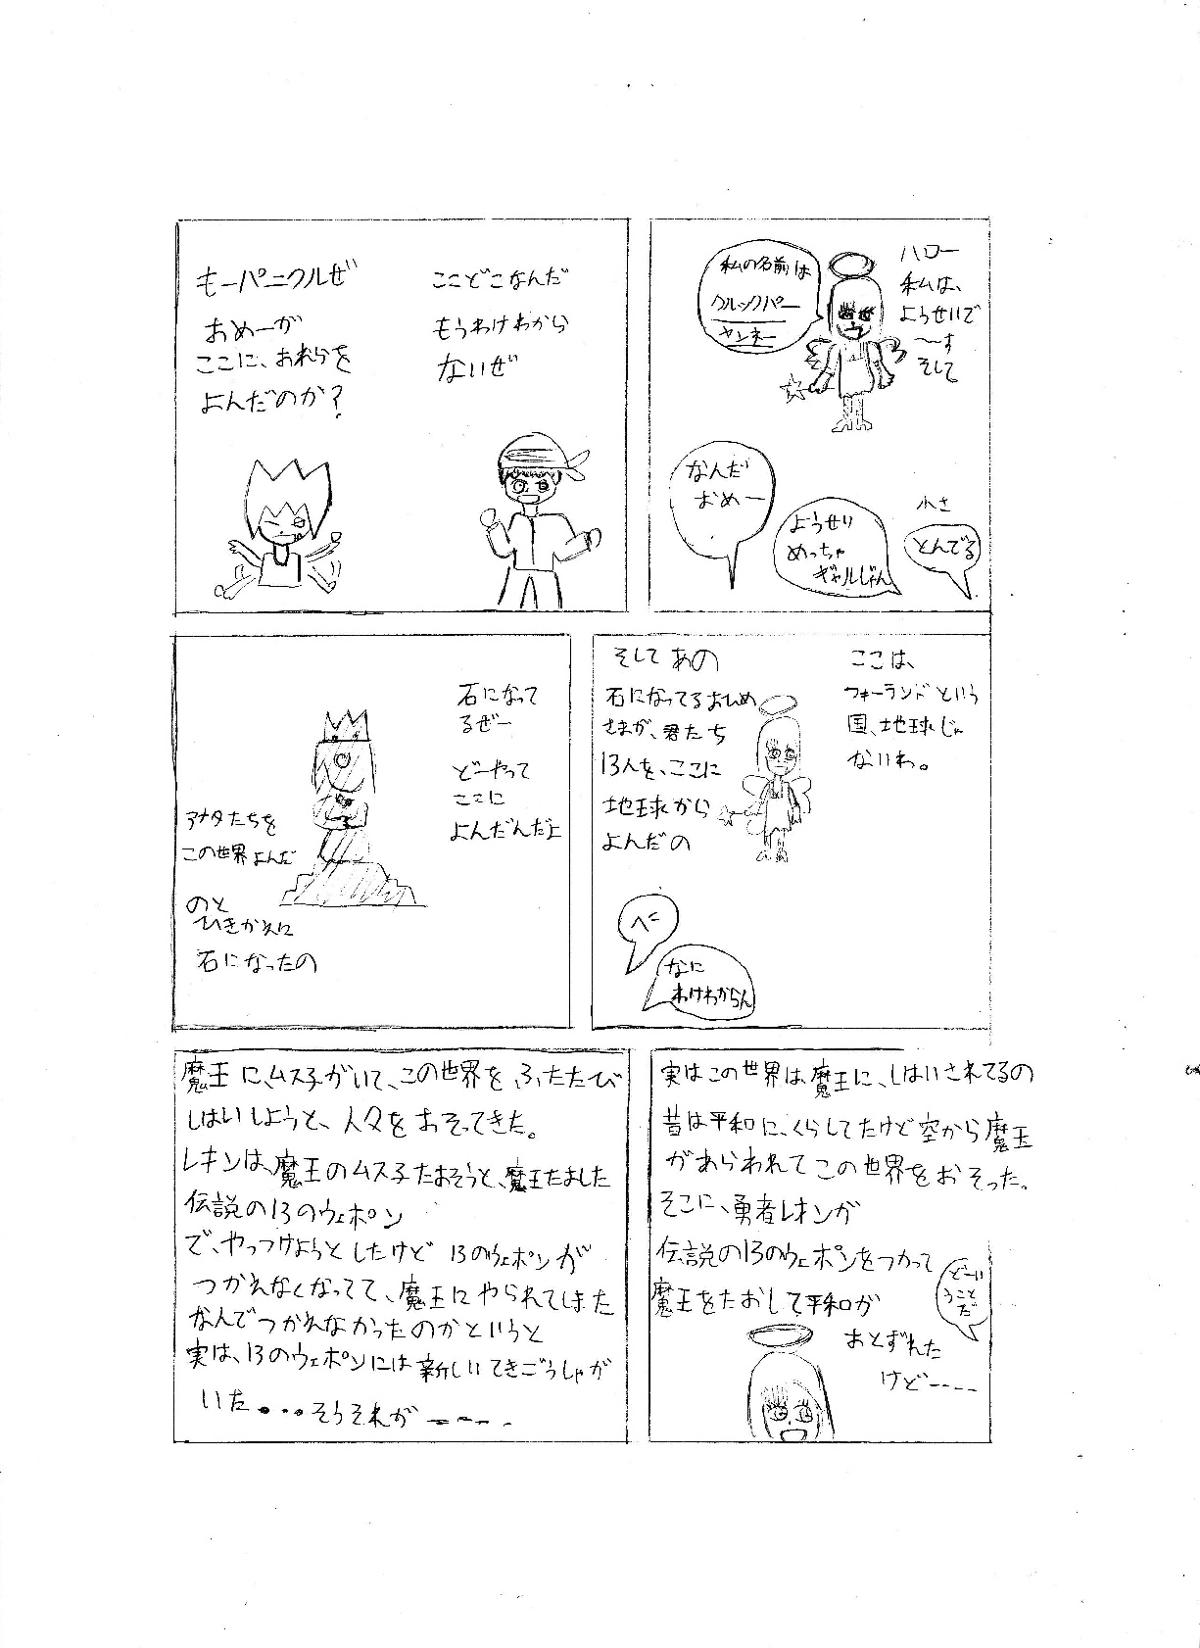 ハロー
私は、
ようせいで
～～す
そして
私の名前は
クルックパー
ヤンネー
小さ
とんでる
ようせり
めっちゃ
ギャルじゃん
なんだ
おめー
ここどこなんだ
もうわけわから
ないぜ
もーパニクルぜ
おめーが
ここに、おれらを
よんだのか?
ここは、
フォーランドという
国、地球じゃ
ないわ。
そしてあの
石になってるおひめ
さまが、君たち
13人を、ここに
地球から
よんだの
へに
なに
わけわからん
石になって
るぜー
どーやって
ここに
よんだんだよ
アナタたちを
この世界よんだ
のと
ひきかえに
石になったの
実はこの世界は、魔王に、しはいされてるの
昔は平和に、くらしてたけど空から魔王
があらわれてこの世界をおそった。
そこに、勇者レオンが
伝説の13のウェポンをつかって
魔王をたおして平和が
おとずれた
けど----
どーい
うこと
だ
魔王に、ムス子がいて、この世界を、ふたたび
しはいしようと、人々をおそってきた。
レオンは、魔王のムス子たおそうと、魔王たました
伝説の13のウェポン
で、やっつけようとしたけど 13のウェポンが
つかえなくなってて、魔王にやられてしまた
なんでつかえなかったのかというと
実は、13のウェポンには新しいてきごうしゃが
いた...そうそれが----